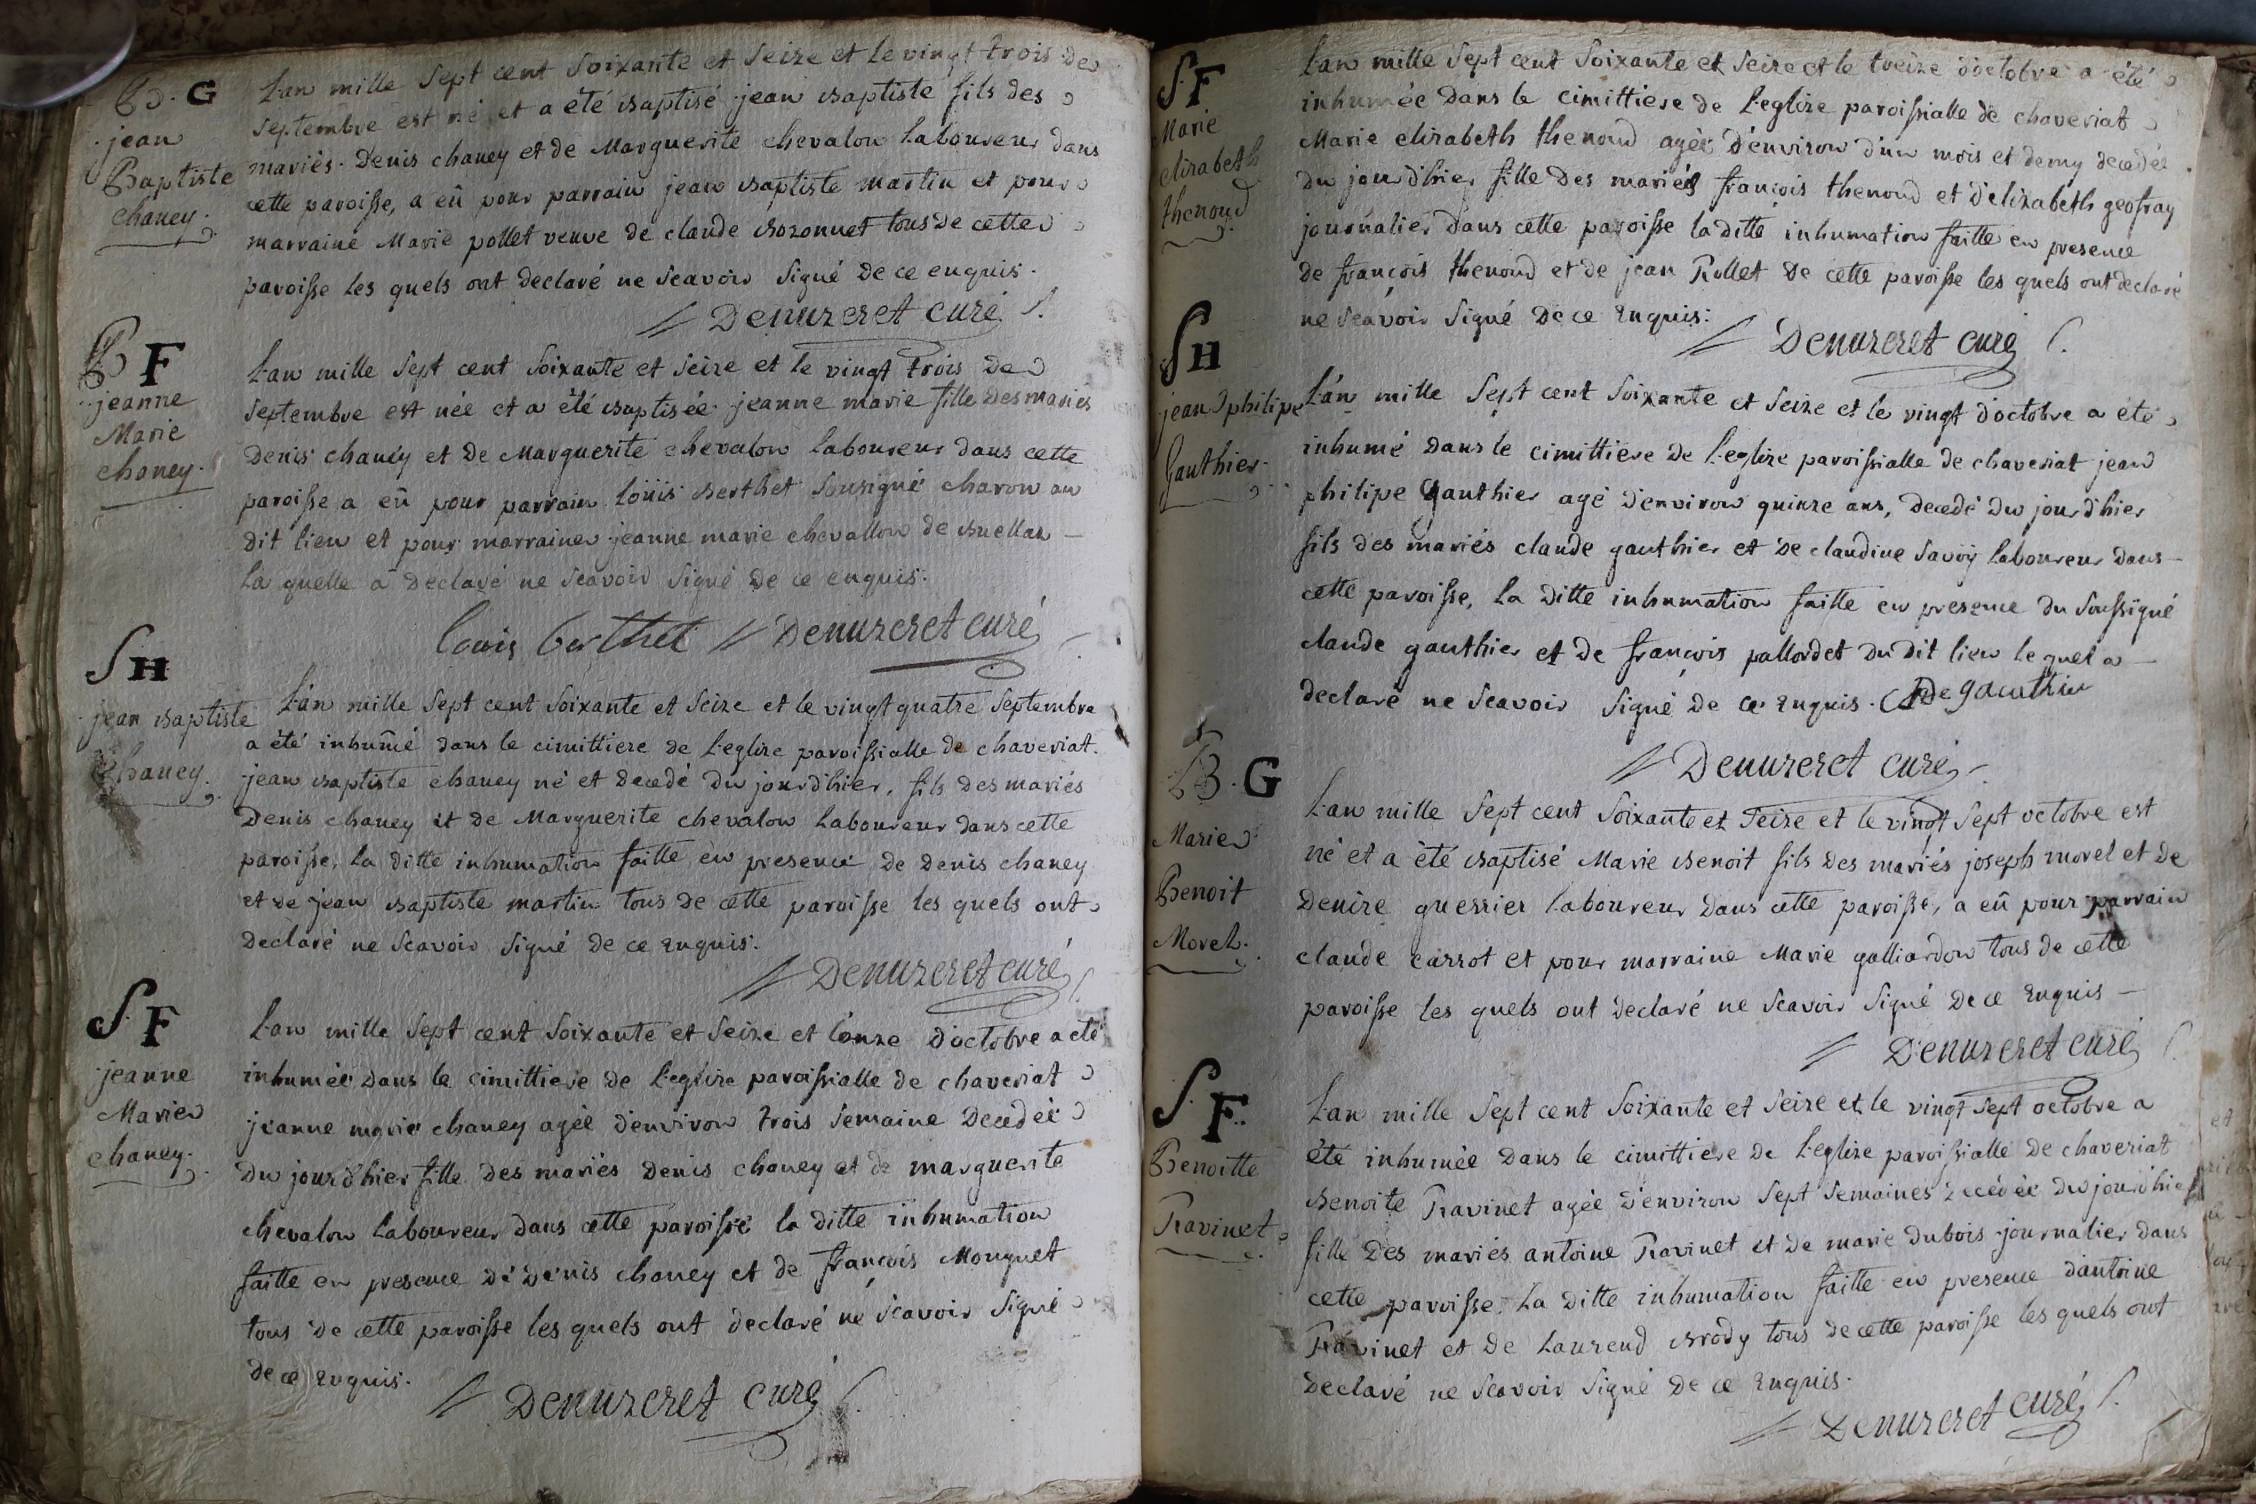 B. G
jean
Baptiste
chaney.
L'an mille sept cent soixante et seize et le vingt trois de
septembre est né et a été baptisé jean baptiste fils des
mariés Denis chaney et de Marguerite chevalon laboureur dans
cette paroisse, a eû pour parrain jean baptiste martin et pour
marraine Marie pollet veuve de claude bozonnet tous de cette
paroisse les quels ont declaré ne scavoir signé de ce enquis.
Denuzeret curé
B F
jeanne
Marie
chaney.
L'an mille sept cent soixante et seize et le vingt trois de
septembre est née et a été baptisée jeanne marie fille des mariés
Denis chaney et de Marguerite chevalon laboureur dans cette
paroisse a eû pour parrain loüis berthet sousigné charon au
dit lieu et pour marraine jeanne marie chevallon de buellas
la quelle a declaré ne scavoir signé de ce enquis.
Louis berthet Denuzeret curé
S H
jean baptiste
chaney.
L'an mille sept cent soixante et seize et le vingt quatre septembre
a été inhumé dans le cimittiere de l'eglize paroissialle de chaveriat.
jean baptiste chaney né et decedé du jour d'hier, fils des mariés
Denis chaney et de Marguerite chevalon laboureur dans cette
paroisse, la ditte inhumation faitte en presence de Denis chaney
et de jean baptiste martin tous de cette paroisse les quels ont
declaré ne scavoir signé de ce enquis.
Denuzeret curé
S. F
jeanne
Marie
chaney.
L'an mille sept cent soixante et seize et l'onze d'octobre a été
inhumée dans le cimittiere de l'eglize paroissialle de chaveriat
jeanne marie chaney agée d'environ trois semaine decedée
du jour d'hier fille des mariés Denis chaney et de marguerite
chevalon laboureur dans cette paroisse la ditte inhumation
faitte en presence de Denis chaney et de françois Monguet
tous de cette paroisse les quels ont declaré ne scavoir signé
de ce enquis.
Denuzeret curé
S. F
Marie
elizabeth
thenoud
L'an mille sept cent soixante et seize et le treize d'octobre a été
inhumée dans le cimittiere de l'eglize paroissialle de chaveriat
Marie elizabeth thenoud agée d'environ d'un mois et demy decedée
du jour d'hier fille des mariés françois thenoud et d'elizabeth geofray
journalier dans cette paroisse la ditte inhumation faitte en presence
de françois thenoud et de jean Rollet de cette paroisse les quels ont declaré
ne scavoir signé de ce enquis.
Denuzeret curé
S H
jean philipe
Gauthier.
L'an mille sept cent soixante et seize et le vingt d'octobre a été
inhumé dans le cimittiere de l'eglize paroissialle de chaveriat jean
philipe gauthier agé d'environ quinze ans, decedé du jour d'hier
fils des mariés claude gauthier et de claudine savoÿ laboureur dans
cette paroisse, la ditte inhumation faitte en presence du soussigné
claude gauthier et de françois pallordet du dit lieu le quel a
declaré ne scavoir signé de ce enquis. gauthier
Denuzeret curé
B. G
Marie
Benoit
Morel.
L'an mille sept cent soixante et seize et le vingt sept octobre est
né et a été baptisé Marie benoit fils des mariés joseph morel et de
Denize guerrier laboureur dans cette paroisse, a eû pour parrain
claude carrot et pour marraine Marie galliardon tous de cette
paroisse les quels ont declaré ne scavoir signé de ce enquis
Denuzeret curé
S. F.
Benoitte
Ravinet
L'an mille sept cent soixante et seize et le vingt sept octobre a
été inhumée dans le cimittiere de l'eglize paroissialle de chaveriat
benoite Ravinet agée d'environ sept semaines decedée du jour d'hier
fille des mariés antoine Ravinet et de marie dubois journalier dans
cette paroisse. La ditte inhumation faitte en presence d'antoine
Ravinet et de Laurend brody tous de cette paroisse les quels ont
declaré ne scavoir signé de ce enquis.
Denuzeret curé